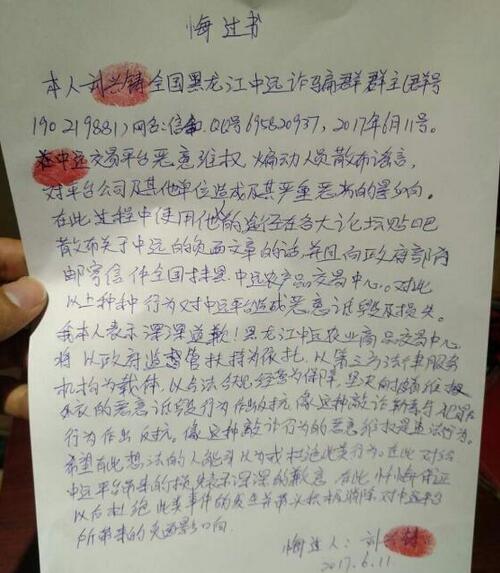 悔过书
本人刘兴铸全国黑龙江中远诈骗群群主(群号
190219881)网名:信和.QQ号695820937，2017年6月11号。
在中远交易平台恶意维权，煽动人员散布谣言，
对平台公司及其他单位造成及其严重恶劣的影响。
在此过程中使用他的途径在各大论坛贴吧
散布关于中远的负面文章的话，并且向政府部门
邮寄信件全国抹黑.中远农产品交易中心。对此
以上种种行为对中远平台造成恶意诋毁及损失。
我本人表示深深道歉！黑龙江中远农业商品交易中心
将以政府监督管扶持为依托，以第三方法律服务
机构为载体，以合法合规经营为保障，坚决向
的恶意诋毁行为作出反抗，像这种敲诈勒索与犯罪
行为作出反抗。像这种敲诈行为的恶意维权是违法行为。
希望有此想法的人能引以为戒杜绝此类行为，在此对
中远平台带来的损失表示深深的歉意，在此忏悔保证
以后杜绝此类事件的发生并带头积极消除对中远平台
所带来的负面影响。
悔过人：刘兴铸
2017.6.11